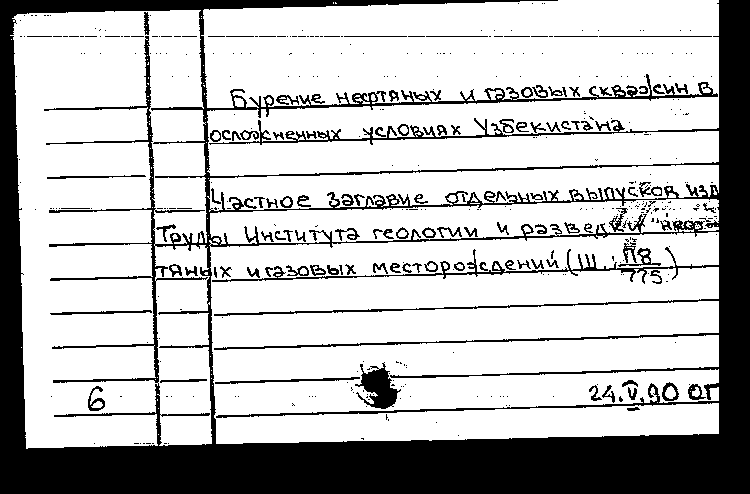 Бурение нефтяных и газовых скважин в
осложненных условиях Узбекистана.
Частное заглавие отдельных выпусков изд
Труды Института геологии и разведки "неф
тяных и газовых месторождений (Ш.; П8/775)
6
24.V.90 ОГ